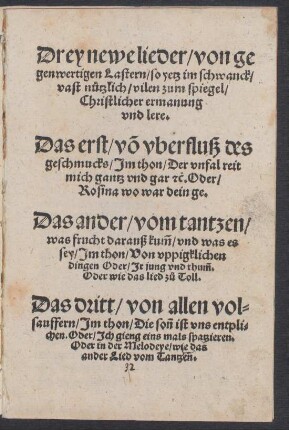 Drey newe lieder/von ge
genwertigen Lastern/so yetz im schwanck/
vast nützlich/vilen zum spiegel/
Christlicher ermanung
vnd lere.
Das erst/võ vberfluß des
geschmucks/Im thon/Der vnfal reit
mich gantz vnd gar ꝛc̃. Oder/
Rosina wo war dein ge.
Das ander/vom tantzen/
was frucht darauß kum̃/vnd was es
sey/Im thon/Von vppigklichen
dingen Oder/It jung vnd thum̃.
Oder wie das lied zů Toll.
Das dritt/von allen vol-
sauffern/Im thon/Die son̄ ist vns entpli-
chen. Oder/Ich gieng eins mals spatzieren.
Oder in der Melodeye/wie das
ander Lied vom Tantzen̄.
32